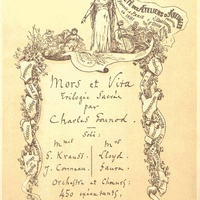 Mors et Vita
Trilogie Sacrée
par
Charles Gounod.
Soli:
Mmes Mrs
G. Krauss. Lloyd.
J. Conneau. Faure.
Orchestre et Choeurs:
450 exécutants,